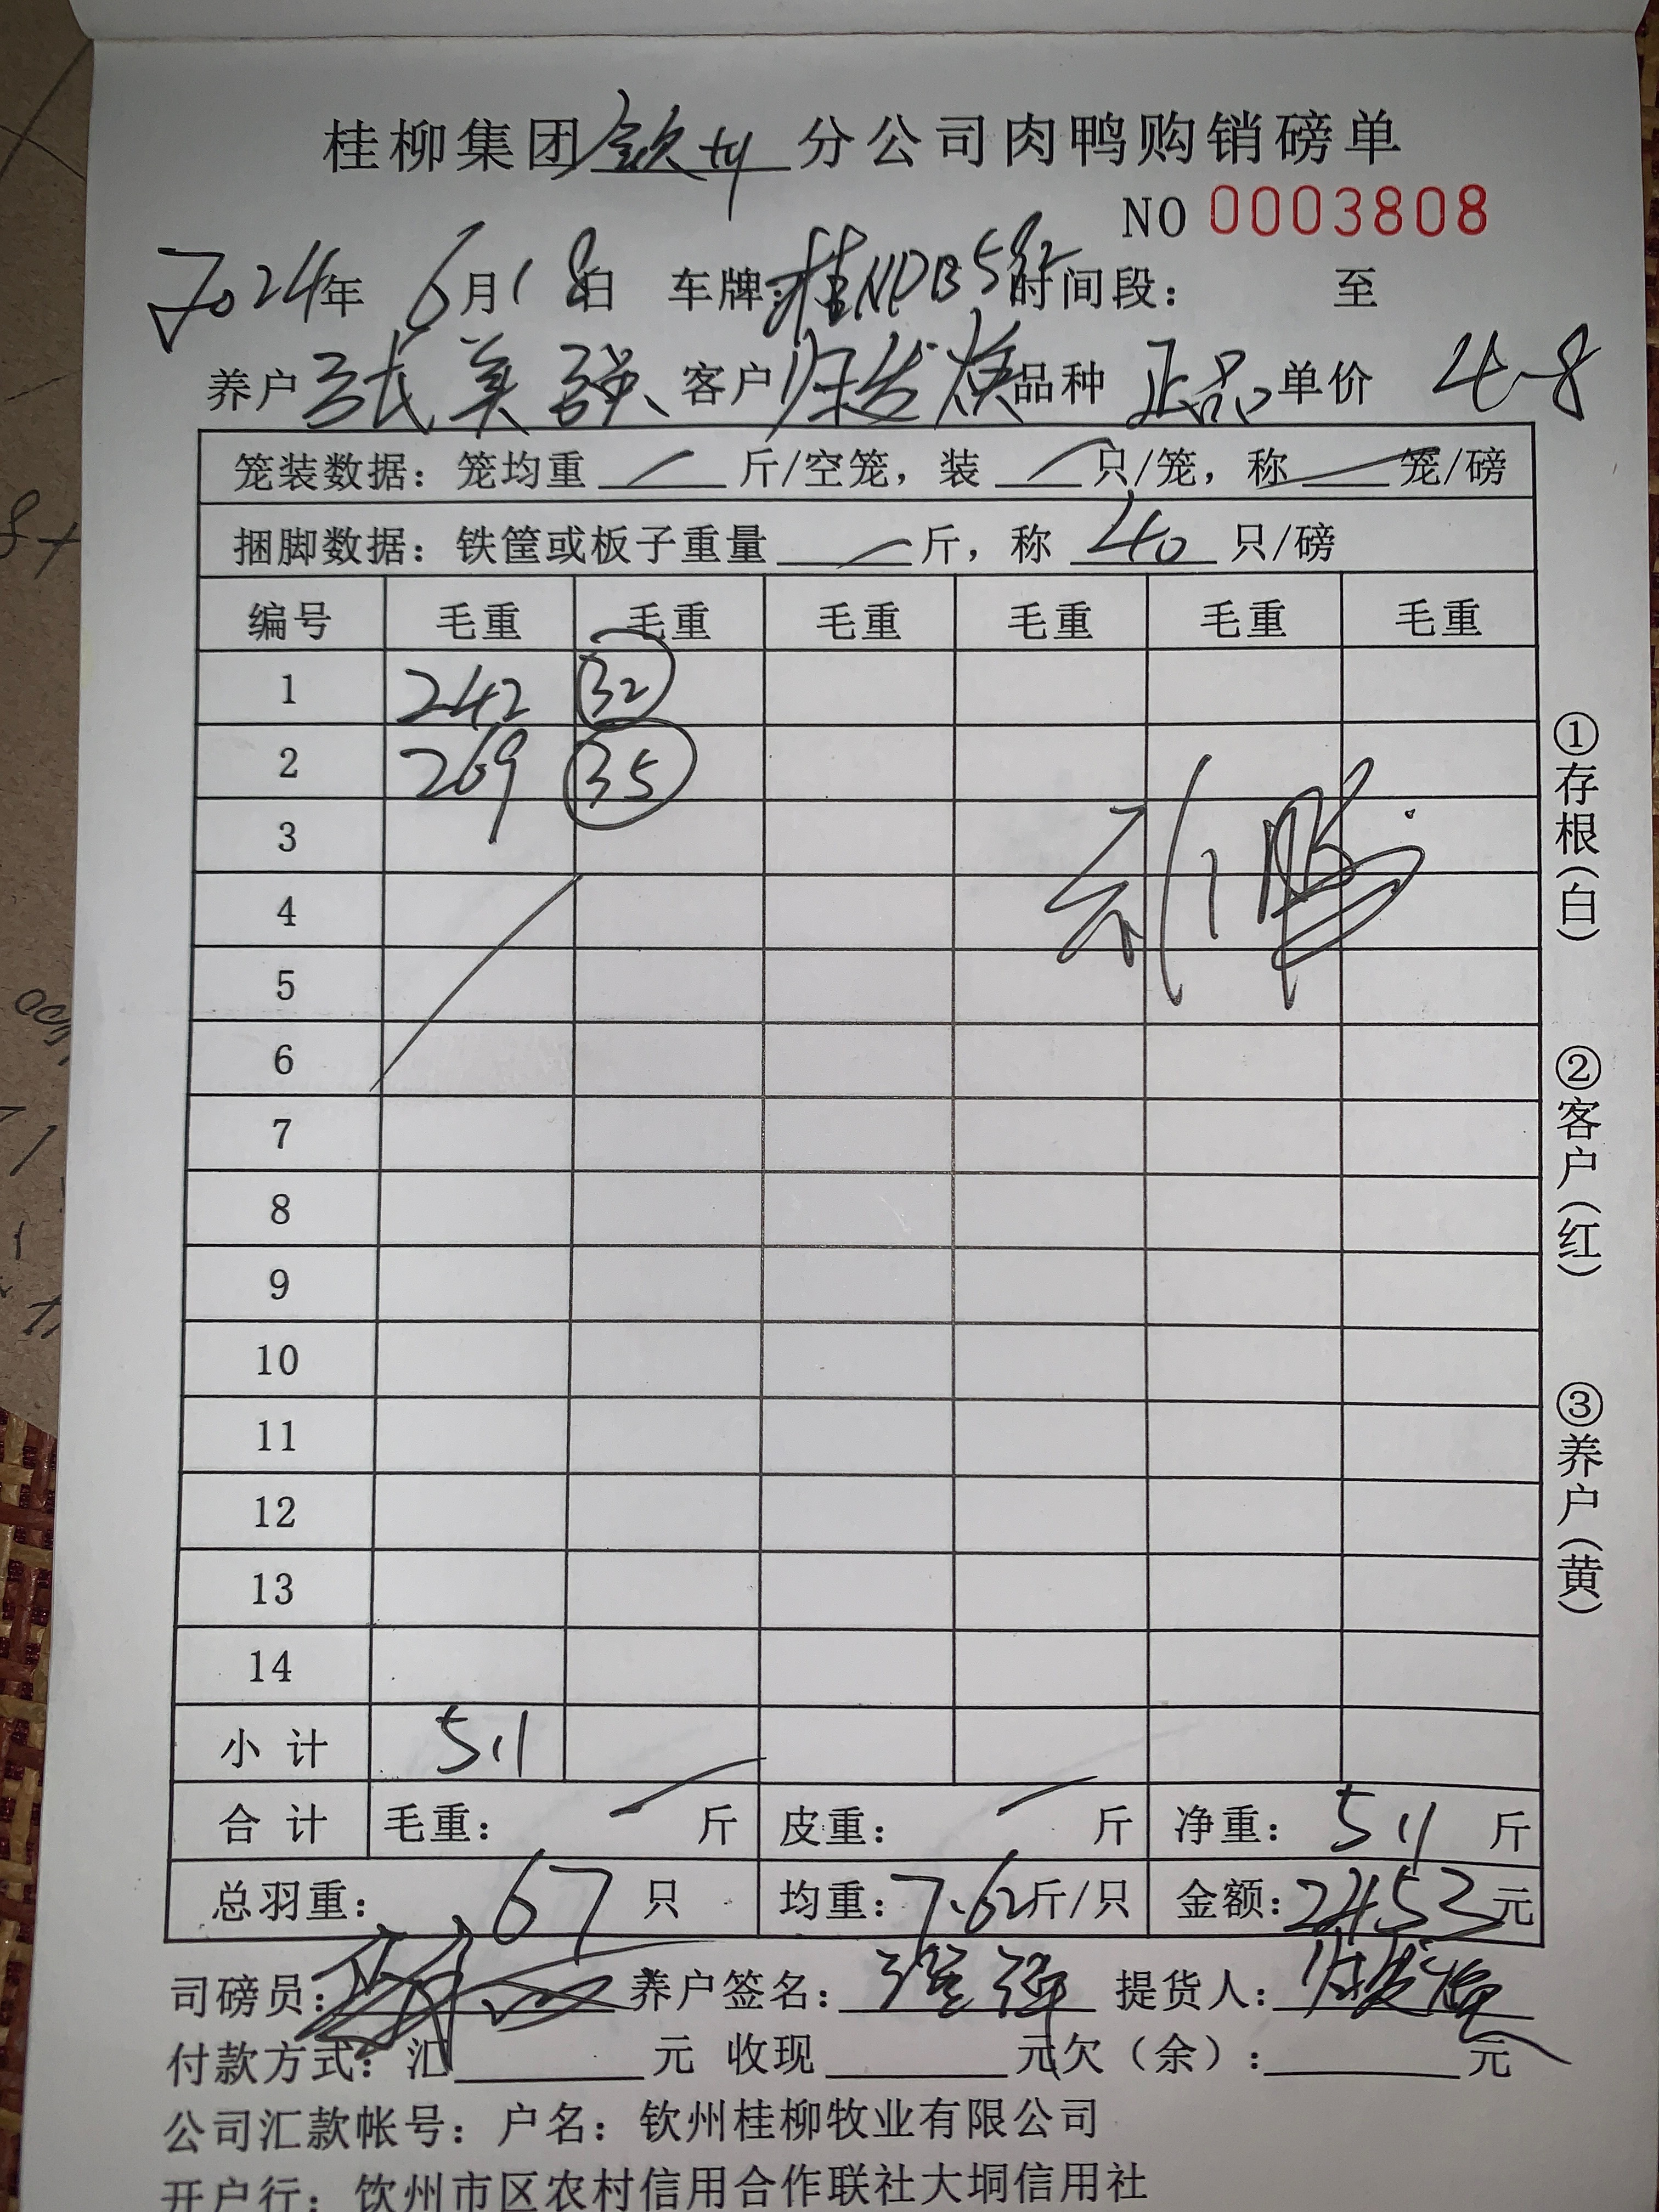 桂柳集团钦州分公司肉鸭购销磅单
NO 0003808
2024年 6月18日 车牌:桂NDB592 时间段: 至
养户 张美强 客户 归发焕 品种 正品 单价 4.8
笼装数据: 笼均重 斤/空笼, 装 只/笼, 称 笼/磅
捆脚数据: 铁筐或板子重量 斤, 称 40 只/磅
编号 毛重 毛重 毛重 毛重 毛重 毛重
1 242 32
2 269 35
3
4
5
6
7
8
9
10
11
12
13
14
小计 511
合计 毛重: 斤 皮重: 斤 净重: 511 斤
总羽重: 67 只 均重: 7.62斤/只 金额: 2453元
司磅员: 养户签名: 提货人: 归发焕
付款方式: 汇 元 收现 元欠(余): 元
公司汇款帐号: 户名: 钦州桂柳牧业有限公司
开户行: 钦州市区农村信用合作联社大垌信用社
①存根(白)
②客户(红)
③养户(黄)